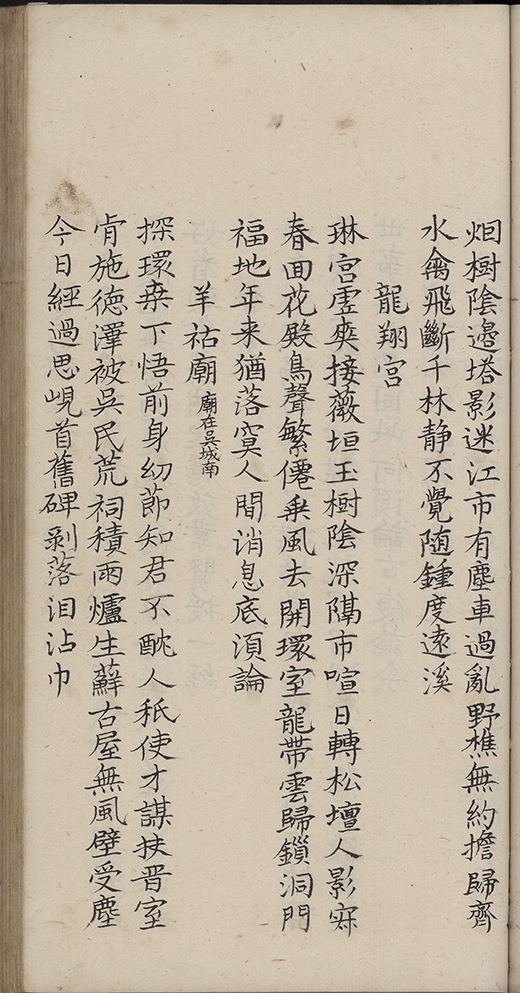 烟樹陰邉塔影迷江市有塵車過亂野樵無約擔歸齊
水禽飛斷千林静不覺随鍾度逺溪
龍翔宫
琳宫虚爽接薇垣玉樹陰深隔市喧日轉松壇人影寂
春囬花殿鳥聲繁僊乗風去開環室龍帶雲歸鎖洞門
福地年来猶落寞人間消息底湏論
羊祜廟廟在吳城南
探環桒下悟前身幼莭知君不酖人秖使才謀扶晋室
肯施徳澤被吳民荒祠積雨爐生蘚古屋無風壁受塵
今日經過思峴首舊碑剥落泪沾巾